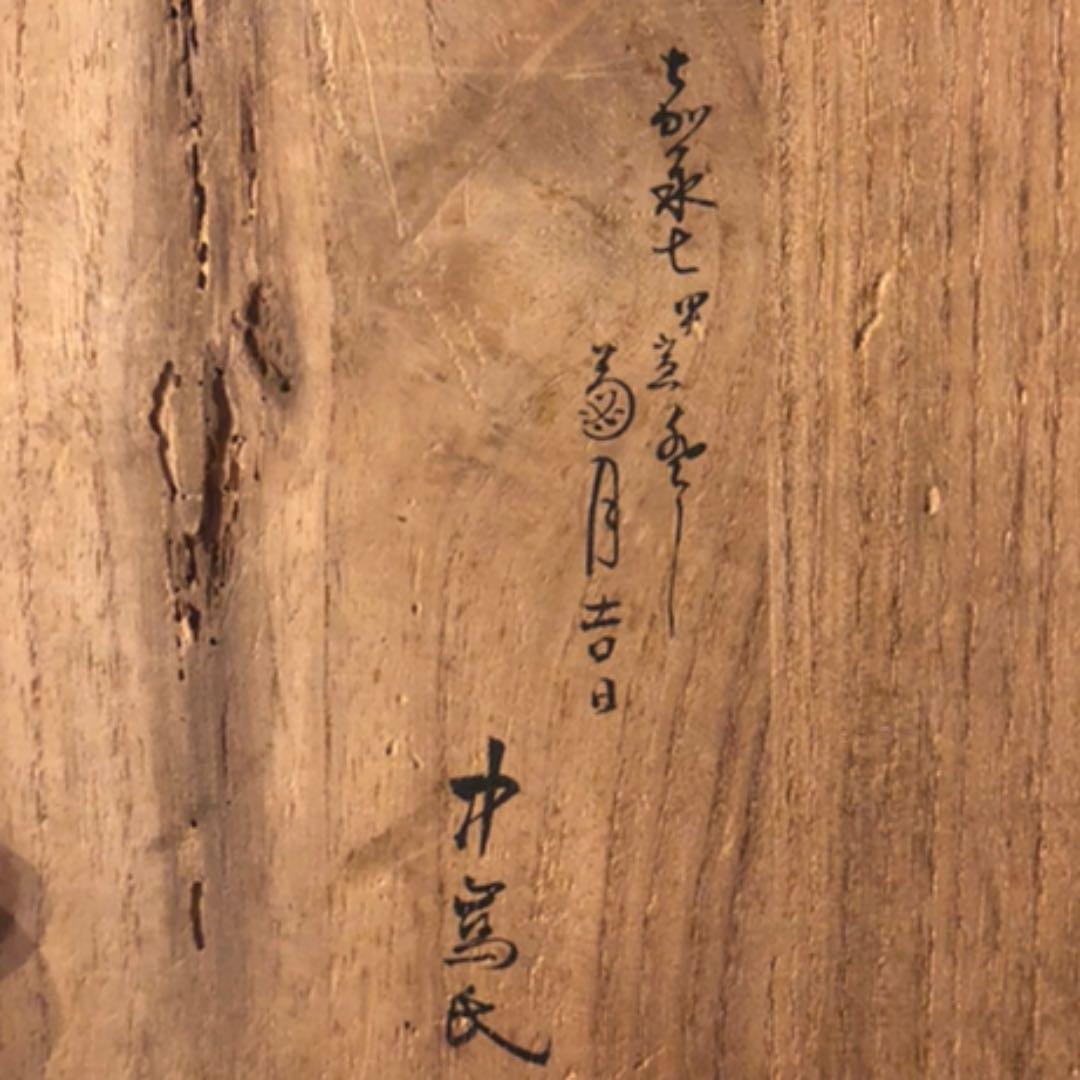 嘉永七甲寅年
菊月吉日
中嶌氏